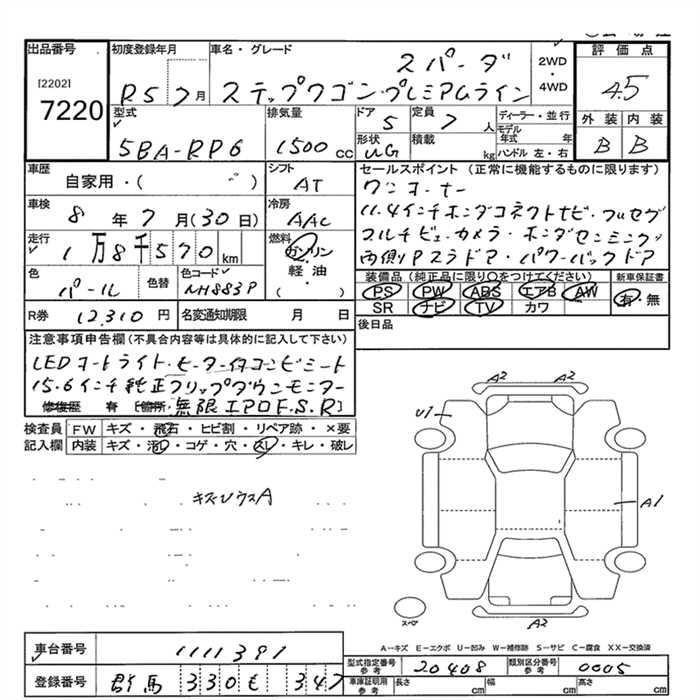 出品番号 初度登録年月 車名・グレード 評価点
[2202]
7220
R5 7月 ステップワゴン スパーダ プレミアムライン 2WD・4WD 4.5
型式 排気量 ドア 定員 ディーラー・並行 外装 内装
5BA-RP6 1500cc 5 7人 モデル年式 年 B B
形状 積載 ハンドル 左・右
WG kg
車歴 シフト セールスポイント(正常に機能するものに限ります)
自家用・( ) AT ワンオーナー
車検 冷房 11.4インチホンダコネクトナビ・フルセグ
8年7月(30日) AAC マルチビューカメラ・ホンダセンシング
走行 燃料 両側Pスラドア・パワーバックドア
1万8千570km ガソリン・軽油・( )
色 色替 色コード 装備品(純正品に限り○をつけてください) 新車保証書
パール NH883P PS PW ABS エアB AW 有・無
SR ナビ TV カワ
R券 12,310円 名変通知期限 月 日 後日品
注意事項申告欄(不具合内容等は具体的に記入して下さい)
LEDオートライト・ヒーター付コンビシート
15.6インチ純正フリップダウンモニター
修復歴 有 [箇所: 無限エアロF.S.R]
検査員 FW キズ・飛石・ヒビ割・リペア跡・×要
記入欄 内装 キズ・汚レ・コゲ・穴・スレ・キレ・破レ
キズ・ウスA
A2 A2
U1
A1
A2
スペア
A-キズ E-エクボ U-凹み W-補修跡 S-サビ C-腐食 XX-交換済
車台番号 1111391
型式指定番号 参考 20408 類別区分番号 参考 0005
登録番号 群馬 330 そ 347
車庫証明用 参考 長さ cm 幅 cm 高さ cm